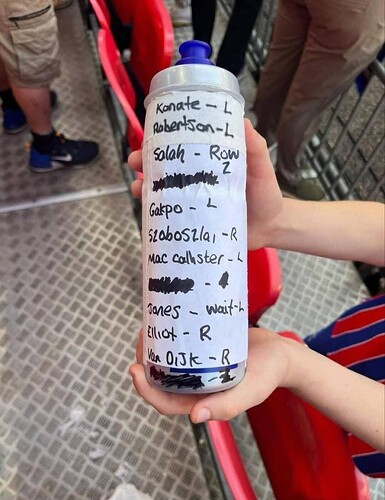 Konate - L
Robertson - L
Salah - Row
2
Gakpo - L
Szoboszlai - R
Mac callister - L
Jones - wait - L
Elliot - R
Van Dijk - R